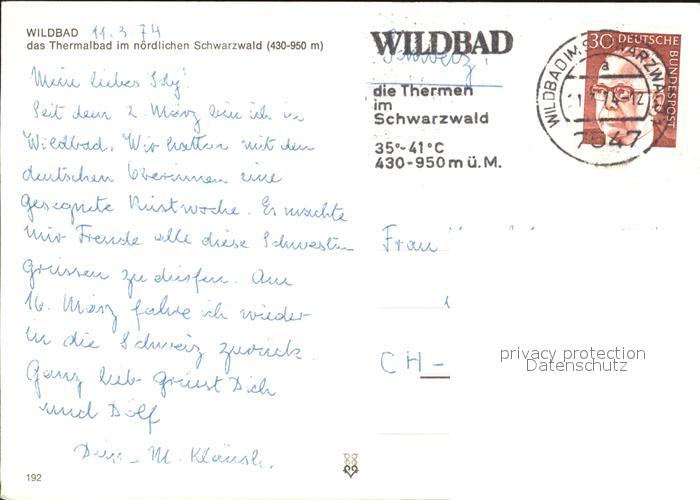 WILDBAD 11.3.74
das Thermalbad im nördlichen Schwarzwald (430-950 m)
Mein liebes
Seit dem 2. März bin ich in
Wildbad. Wir hatten mit den
deutschen Oberinnen eine
gesegnete Rüstwoche. Es machte
mir Freude alle diese Schwestern
grüssen zu dürfen. Am
16. März fahre ich wieder
in die Schweiz zurück.
Ganz lieb grüsst Dich
und Dölf
M.
192
WILDBAD
Schweiz
die Thermen
im
Schwarzwald
35°-41°C
430-950 m ü. M.
WILDBAD IM SCHWARZWALD
a
7547
30 DEUTSCHE
BUNDESPOST
Frau
CH-
privacy protection
Datenschutz